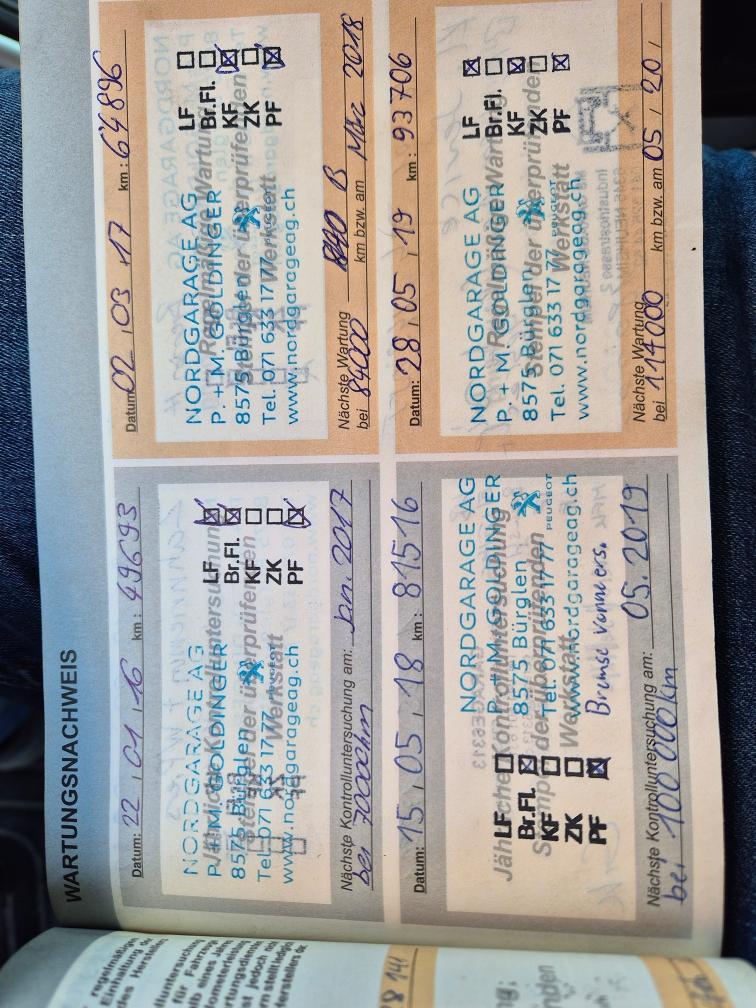 WARTUNGSNACHWEIS
Datum: 22.01.16 km: 49693
Jährliche Kontrolluntersuchung
Stempel der überprüfenden
Werkstatt
NORDGARAGE AG
P. + M. GOLDINGER
8575 Bürglen
Tel. 071 633 17 77 PEUGEOT
www.nordgarageag.ch
LF ☒
Br.Fl. ☒
KF ☐
ZK ☐
PF ☒
Nächste Kontrolluntersuchung am: Jan. 2017
bei 70000km
Datum: 02.03.17 km: 64896
Regelmäßige Wartung
Stempel der überprüfenden
Werkstatt
NORDGARAGE AG
P. + M. GOLDINGER
8575 Bürglen
Tel. 071 633 17 77
www.nordgarageag.ch
LF ☐
Br.Fl. ☐
KF ☒
ZK ☐
PF ☒
Nächste Wartung
bei 84000 km bzw. am März 2018
Datum: 15.05.18 km: 81516
Jährliche Kontrolluntersuchung
Stempel der überprüfenden
Werkstatt
NORDGARAGE AG
P. + M. GOLDINGER
8575 Bürglen
Tel. 071 633 17 77 PEUGEOT
www.nordgarageag.ch
LF ☐
Br.Fl. ☒
KF ☐
ZK ☐
PF ☒
Bremse vorn ers.
Nächste Kontrolluntersuchung am: 05.2019
bei 100 000km
Datum: 28.05.19 km: 93706
Regelmäßige Wartung
Stempel der überprüfenden
Werkstatt
NORDGARAGE AG
P. + M. GOLDINGER
8575 Bürglen
Tel. 071 633 17 77 PEUGEOT
www.nordgarageag.ch
LF ☒
Br.Fl. ☐
KF ☒
ZK ☐
PF ☒
Nächste Wartung
bei 114000 km bzw. am 05/20/